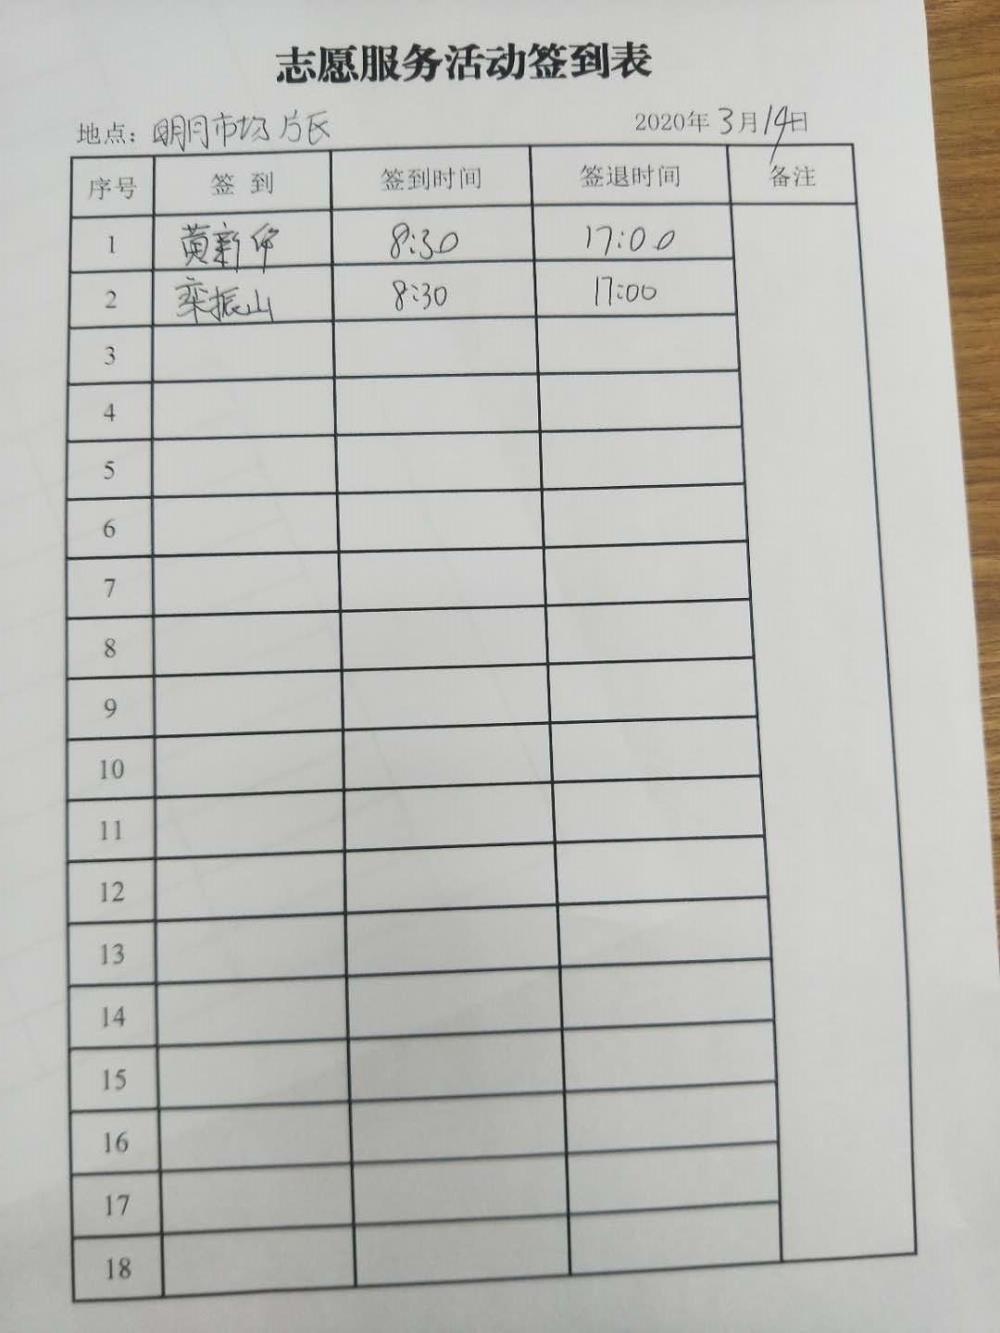 志愿服务活动签到表
地点：明月市场片区 2020年3月14日
序号 签到 签到时间 签退时间 备注
1 黄新华 8:30 17:00
2 栾振山 8:30 17:00
3
4
5
6
7
8
9
10
11
12
13
14
15
16
17
18